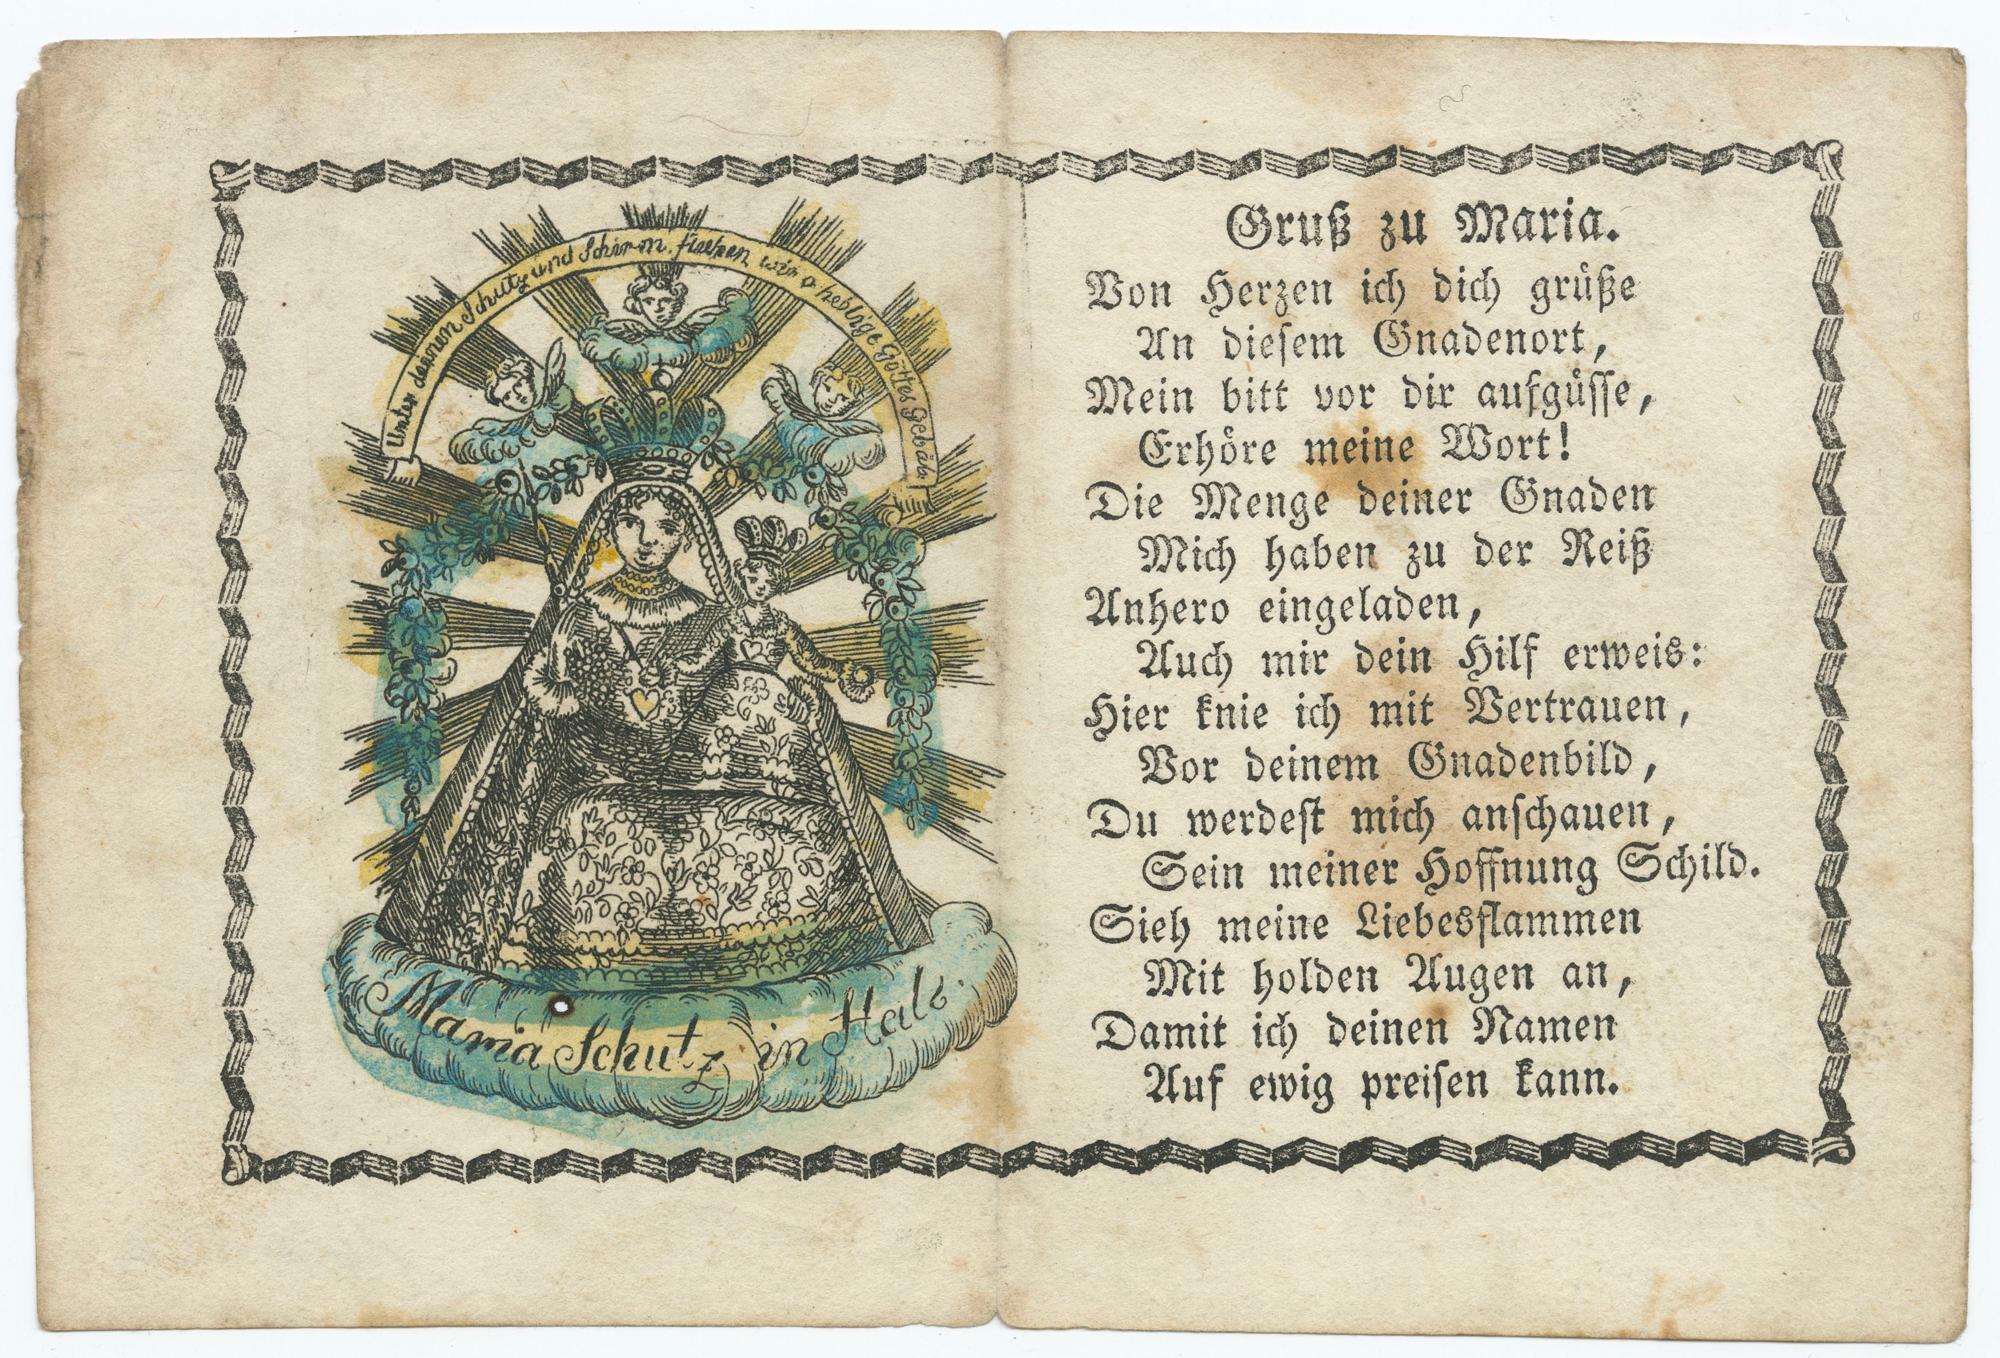 Unter deinen Schutz und Schirm fliehen wir o heilige Gottes Gebäh
Maria Schutz in Hals.
Gruß zu Maria.
Von Herzen ich dich grüße
An diesem Gnadenort,
Mein bitt vor dir aufgüsse,
Erhöre meine Wort!
Die Menge deiner Gnaden
Mich haben zu der Reiß
Anhero eingeladen,
Auch mir dein Hilf erweis:
Hier knie ich mit Vertrauen,
Vor deinem Gnadenbild,
Du werdest mich anschauen,
Sein meiner Hoffnung Schild.
Sieh meine Liebesflammen
Mit holden Augen an,
Damit ich deinen Namen
Auf ewig preisen kann.